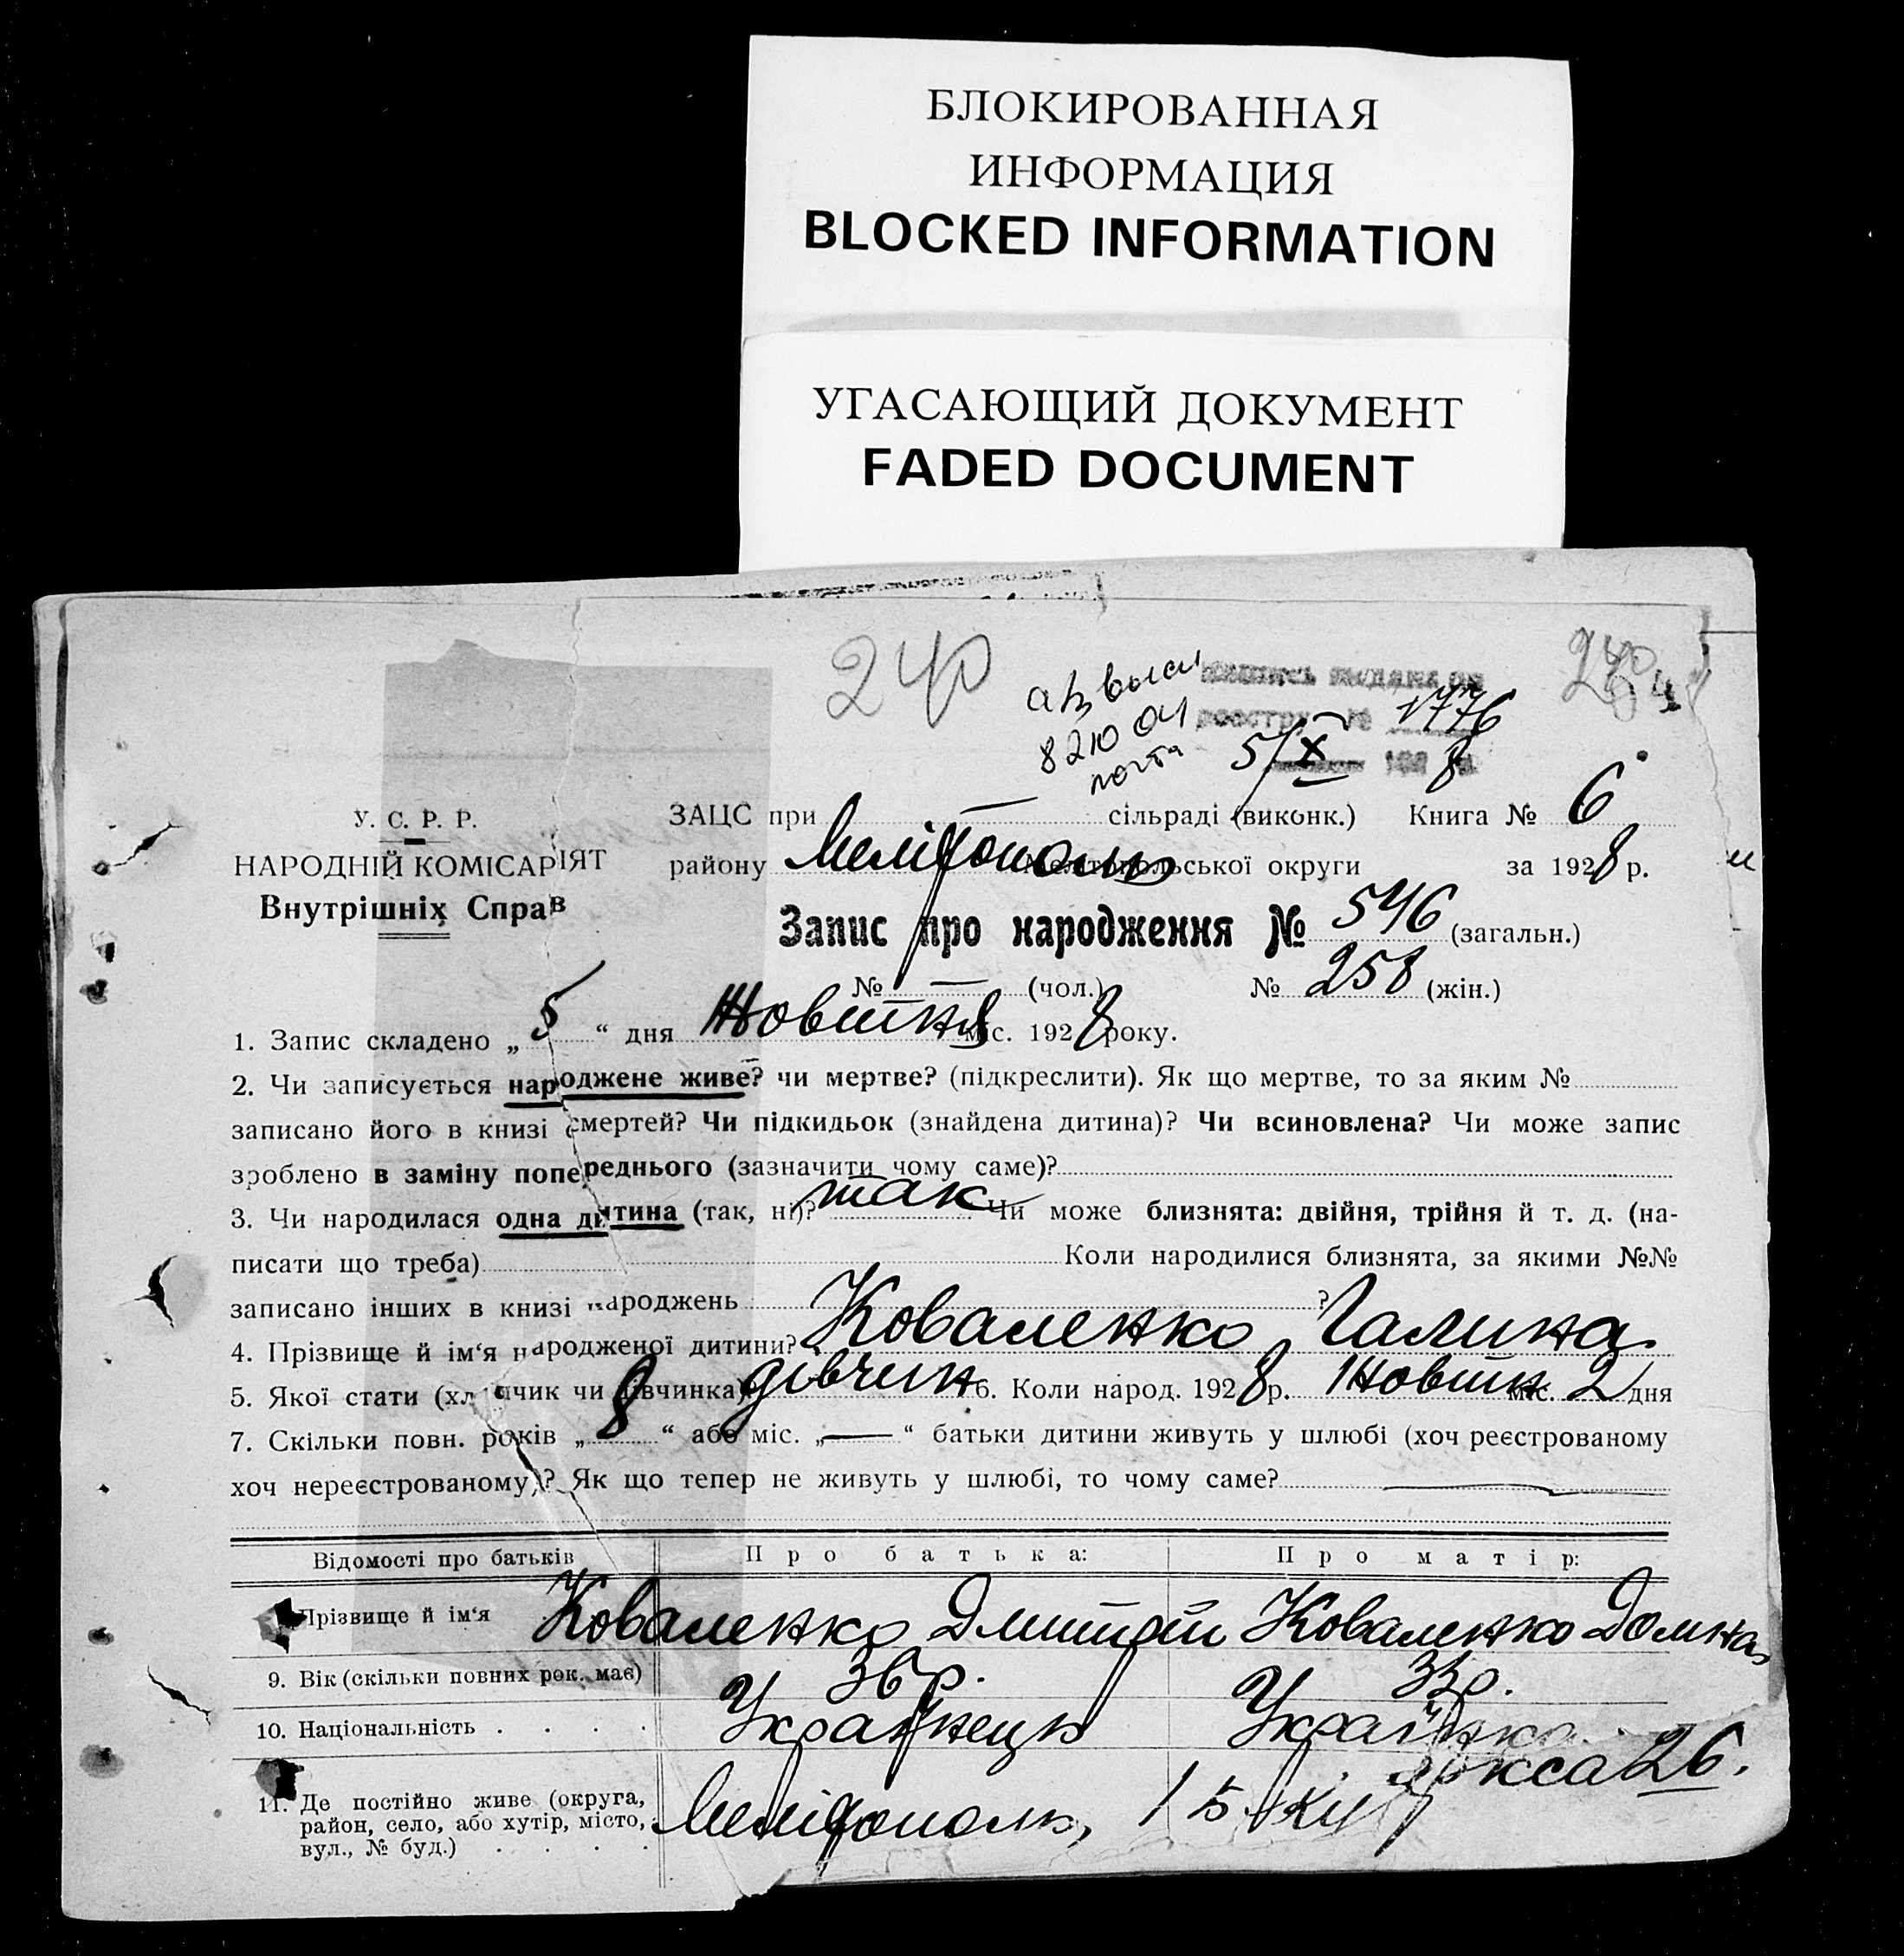 БЛОКИРОВАННАЯ
ИНФОРМАЦИЯ
BLOCKED INFORMATION
УГАСАЮЩИЙ ДОКУМЕНТ
FADED DOCUMENT
240
240
1776
82104
почта
5/X 192 8
У. С. Р. Р.
НАРОДНІЙ КОМІСАРІЯТ
Внутрішніх Справ
ЗАЦС при — сільраді (виконк.) Книга № 6
району Мелітополь Мелітопольської округи за 1928 р.
Запис про народження № 546 (загальн.)
№ — (чол.) № 258 (жін.)
1. Запис складено „5“ дня Жовтня міс. 1928 року.
2. Чи записується народжене живе? чи мертве? (підкреслити). Як що мертве, то за яким №
записано його в книзі смертей? Чи підкидьок (знайдена дитина)? Чи всиновлена? Чи може запис
зроблено в заміну попереднього (зазначити чому саме)?
3. Чи народилася одна дитина (так, ні)? так Чи може близнята: двійня, трійня й т. д. (на-
писати що треба) Коли народилися близнята, за якими №№
записано інших в книзі народжень ?
4. Прізвище й ім‘я народженої дитини? Коваленко Галина
5. Якої стати (хлопчик чи дівчинка) дівчин 6. Коли народ. 1928 р. Жовтн міс. 2 дня
7. Скільки повн. років „8“ або міс. „—“ батьки дитини живуть у шлюбі (хоч реєстрованому
хоч нереєстрованому)? Як що тепер не живуть у шлюбі, то чому саме? —
Відомості про батьків Про батька: Про матір:
Прізвище й ім‘я Коваленко Дмитрій Коваленко Домна
9. Вік (скільки повних рок. має) 36 р. р.
10. Національність . . . . Українець Українка
11. Де постійно живе (округа,
район, село, або хутір, місто,
вул., № буд.) . . . . Мелітополь, 26.